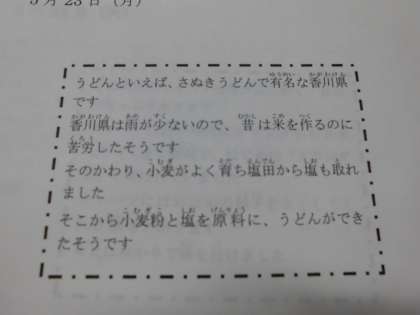 5月23日（月）
うどんといえば、さぬきうどんで有名な香川県
です
香川県は雨が少ないので、昔は米を作るのに
苦労したそうです
そのかわり、小麦がよく育ち塩田から塩も取れ
ました
そこから小麦粉と塩を原料に、うどんができ
たそうです